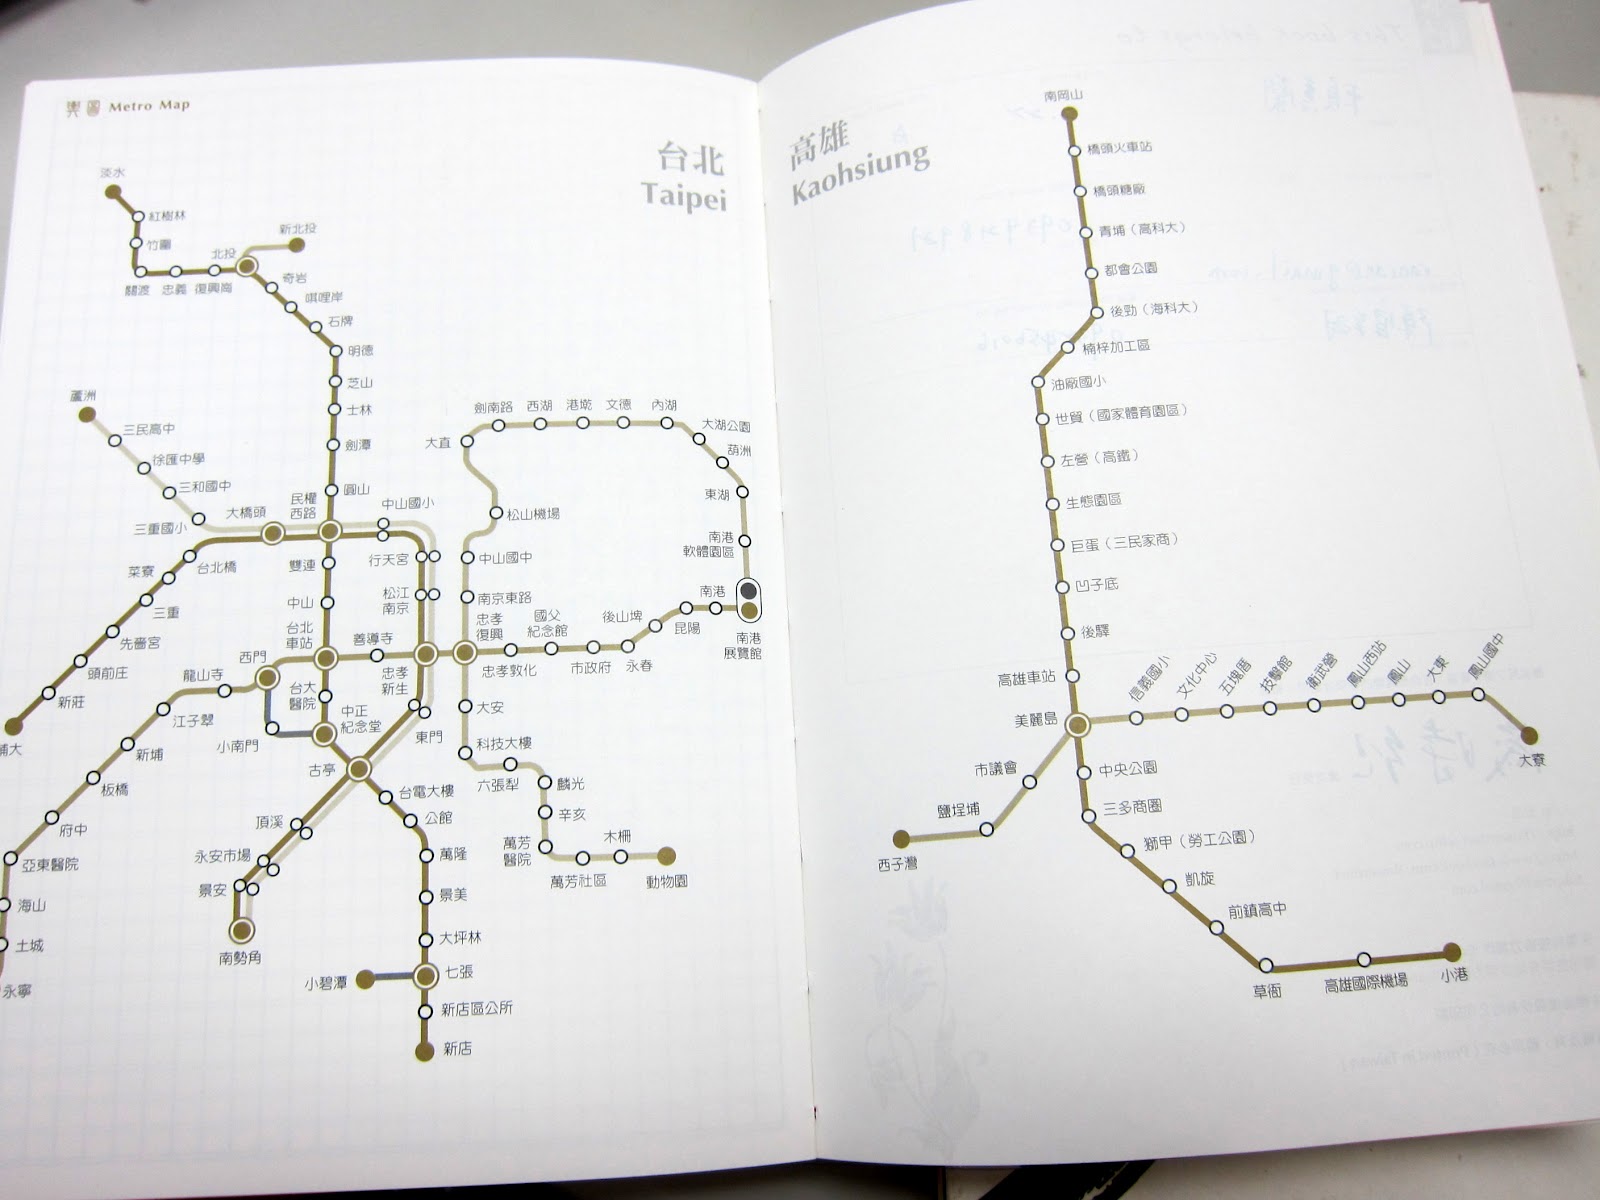 輿圖 Metro Map
台北
Taipei
淡水
紅樹林
竹圍
關渡
忠義
復興崗
北投
新北投
奇岩
唭哩岸
石牌
明德
芝山
士林
劍潭
圓山
民權
西路
蘆洲
三民高中
徐匯中學
三和國中
三重國小
大橋頭
台北橋
菜寮
三重
先嗇宮
頭前庄
新莊
輔大
中山國小
行天宮
松江
南京
雙連
中山
台北
車站
善導寺
忠孝
新生
忠孝
復興
忠孝敦化
國父
紀念館
市政府
永春
後山埤
昆陽
南港
南港
展覽館
南港
軟體園區
東湖
葫洲
大湖公園
內湖
文德
港墘
西湖
劍南路
大直
松山機場
中山國中
南京東路
大安
科技大樓
六張犁
麟光
辛亥
萬芳
醫院
萬芳社區
木柵
動物園
西門
龍山寺
江子翠
新埔
板橋
府中
亞東醫院
海山
土城
永寧
小南門
台大
醫院
中正
紀念堂
東門
古亭
頂溪
永安市場
景安
南勢角
台電大樓
公館
萬隆
景美
大坪林
七張
小碧潭
新店區公所
新店
高雄
Kaohsiung
南岡山
橋頭火車站
橋頭糖廠
青埔（高科大）
都會公園
後勁（海科大）
楠梓加工區
油廠國小
世貿（國家體育園區）
左營（高鐵）
生態園區
巨蛋（三民家商）
凹子底
後驛
高雄車站
美麗島
信義國小
文化中心
五塊厝
技擊館
衛武營
鳳山西站
鳳山
大東
鳳山國中
大寮
市議會
鹽埕埔
西子灣
中央公園
三多商圈
獅甲（勞工公園）
凱旋
前鎮高中
草衙
高雄國際機場
小港